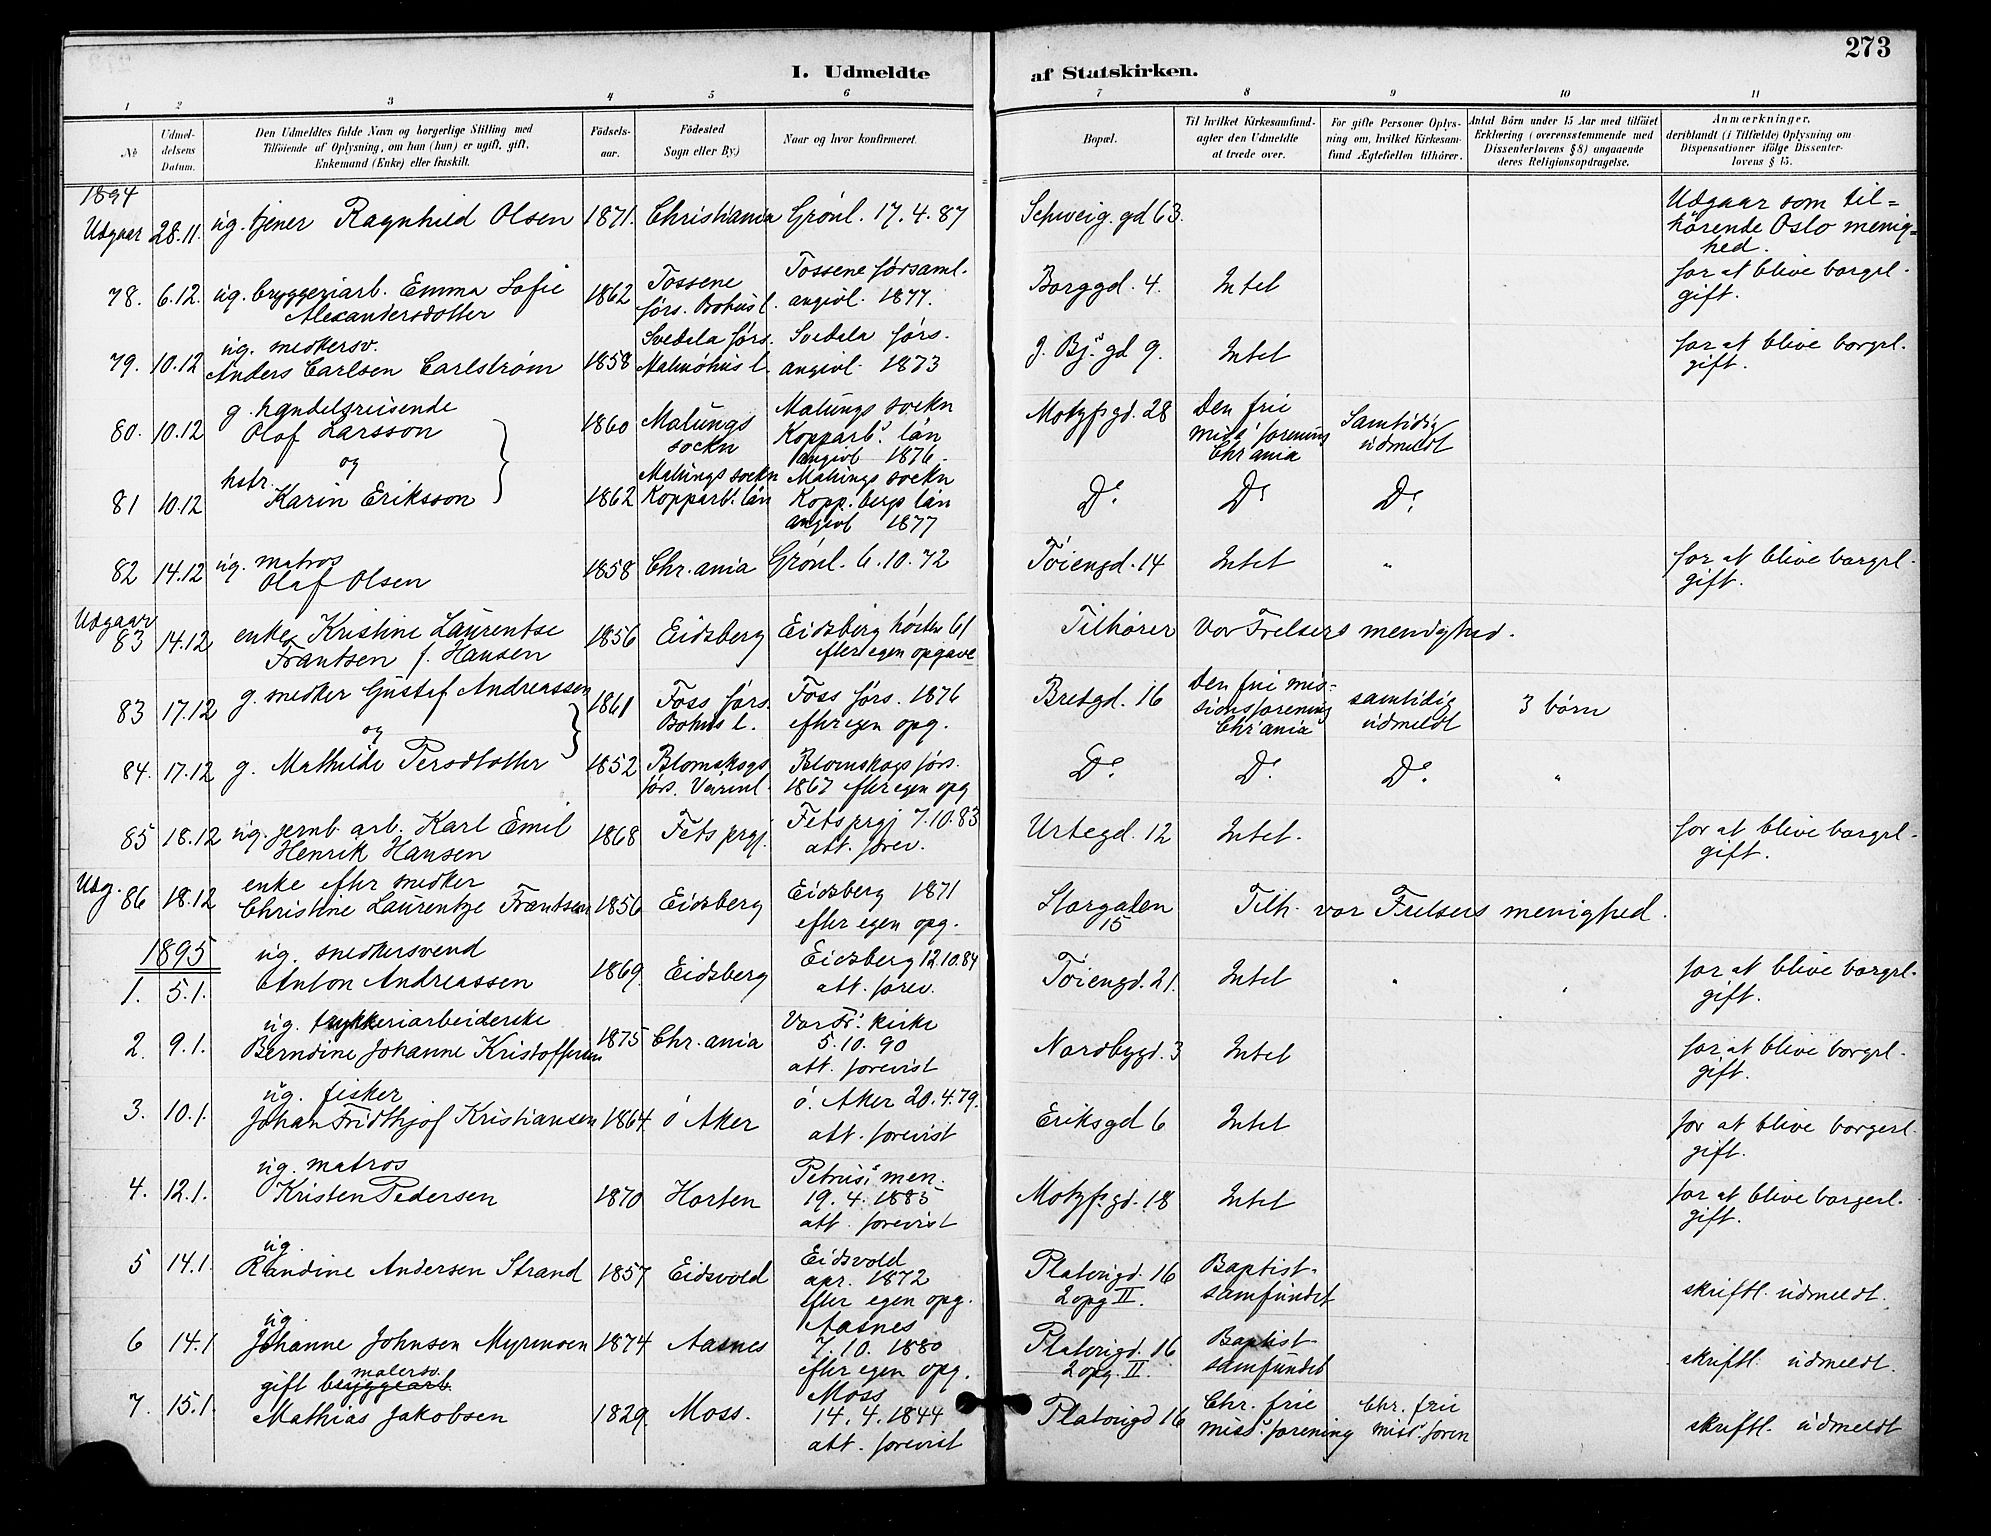 273
I. Udmeldte af Statskirken.
1 2 3 4 5 6 7 8 9 10 11
№
Udmel-
delsens
Datum.
Den Udmeldtes fulde Navn og borgerlige Stilling med
Tilföiende af Oplysning, om han (hun) er ugift, gift,
Enkemand (Enke) eller fraskilt.
Födsels-
aar.
Födested
Sogn eller By.)
Naar og hvor konfirmeret.
Bopæl.
Til hvilket Kirkesamfund-
agter den Udmeldte
at træde over.
For gifte Personer Oplys-
ning om, hvilket Kirkesam-
fund Ægtefællen tilhörer.
Antal Börn under 15 Aar med tilföiet
Erklæring (overensstemmende med
Dissenterlovens § 8) angaaende
deres Religionsopdragelse.
Anmærkninger,
deriblandt (i Tilfælde) Oplysning om
Dispensationer ifölge Dissenter-
lovens § 15.
1894
Udgaar 28.11. ug. tjener Ragnhild Olsen 1871. Christiania Grönl. 17.4.87 Schweig.gd 63. Udgaar som til=
hørende Oslo menig=
hed.
78. 6.12. ug. bryggeriarb. Emma Sofie
Alexandersdotter 1862 Tossene
førs. Bohusl. Tossene førsaml.
angivl. 1877. Borggd. 4. Intet for at blive borgrl.
gift.
79. 10.12 ug. snedkersv.
Anders Carlsen Carlstrøm 1858 Svedala førs.
Malmöhus l. Svedala førs.
angivl. 1873 J. Bj.s gd 9. Intet for at blive borgrl.
gift.
80. 10.12 g. handelsreisende
Olof Larsson 1860 Malungs
sockn Malungs sockn
Kopparb.s län
angivl 1876. Motzfs gd. 28 Den frie
miss.forening
Chr ania Samtidig
udmeldt
og
81 10.12 hstr.
Karin Eriksson 1862 Malungs sockn
Kopparb. län Malungs sockn
Kopp.bergs län
angivl 1877 Do. Do Do.
82 14.12 ug. matros
Olaf Olsen 1858 Chr.ania Grönl. 6.10.72 Töiengd. 14 Intet " for at blive borgrl.
gift.
Udgaar
83 14.12 enke Kristine Laurentse
Frantsen f. Hansen 1856 Eidsberg Eidsberg høsten 61
efter egen opgave Tilhører Vor Frelsers menighed.
83 17.12 g. snedker Gustaf Andreassen 1861 Foss førs.
Bohus l. Foss førs. 1876
efter egen opg. Bredgd. 16 Den frie mis=
sionsforening
Chr ania samtidig
udmeldt 3 börn
og
84. 17.12 g. Mathilde Persdtotter 1852 Blomskogs
førs. Värml. Blomskogs førs.
1867 efter egen opg Do. Do. Do. "
85 18.12 ug. jernb. arb. Karl Emil
Henrik Hansen 1868 Fets prgj. Fets prgj 7.10.83
att. forev. Urtegd. 12 Intet. for at blive borgrl.
gift.
Udg. 86 18.12 enke efter snedker
Christine Laurentze Frantsen 1856 Eidsberg Eidsberg 1871
efter egen opg. Storgaten
15 Tilh. vor Frelsers menighed.
1895
1. 5.1. ug. snedkersvend
Anton Andreassen 1869. Eidsberg Eidsberg 12.10.84
att. forev. Töiengd. 21. Intet " " for at blive borgrl.
gift.
2. 9.1. ug. trykkeriarbeiderske
Berndine Johanne Kristoffersen 1875 Chr.ania Vor Fr.s kirke
5.10.90
att. forevist Nordbygd. 3 Intet for at blive borgrl.
gift.
3. 10.1. ug. fisker
Johan Fridthjof Kristiansen 1864 ö Aker ö. Aker 20.4.79.
att. forevist Eriksgd 6 Intet for at blive borgerl.
gift.
4. 12.1. ug. matros
Kristen Pedersen 1870 Horten Petrus's men.
19.4.1885
att. forevist Motzfs gd. 18 Intet for at blive borgerl.
gift.
5 14.1. ug.
Randine Andersen Strand 1857 Eidsvold Eidsvold
apr. 1872
efter egen opg. Platougd. 16
2 opg II. Baptist-
samfundet skriftl. udmeldt.
6 14.1 ug
Johanne Johnsen Myrmoen 1874 Aasnes Aasnes
7.10.1880
efter egen opg. Platougd. 16
2 opg. II. Baptist-
samfundet skriftl. udmeldt.
7. 15.1. gift bryggearb malersv.
Mathias Jakobsen 1829 Moss. Moss
14.4.1844
att. forevist Platougd 16 Chr. frie
miss.forening Chr. frie
miss.foren skriftl. udmeldt